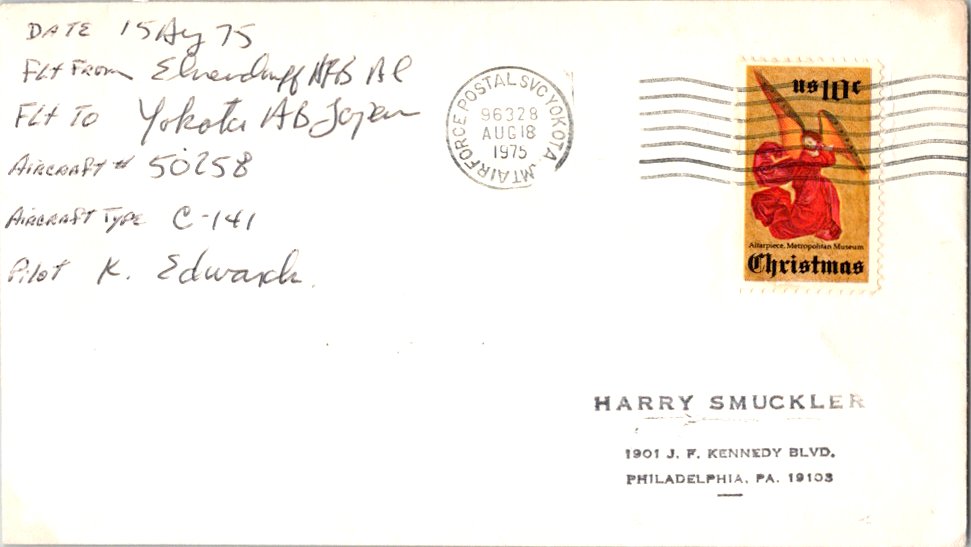 DATE 15 Aug 75
Flt From Elmendorf AFB Al
Flt To Yokota AB Japan
Aircraft # 50258
Aircraft Type C-141
Pilot K. Edwards
AIR FORCE POSTAL SVC YOKOTA JMT
96328
AUG 18
1975
us 10¢
Altarpiece, Metropolitan Museum
Christmas
HARRY SMUCKLER
1901 J. F. KENNEDY BLVD.
PHILADELPHIA, PA. 19103